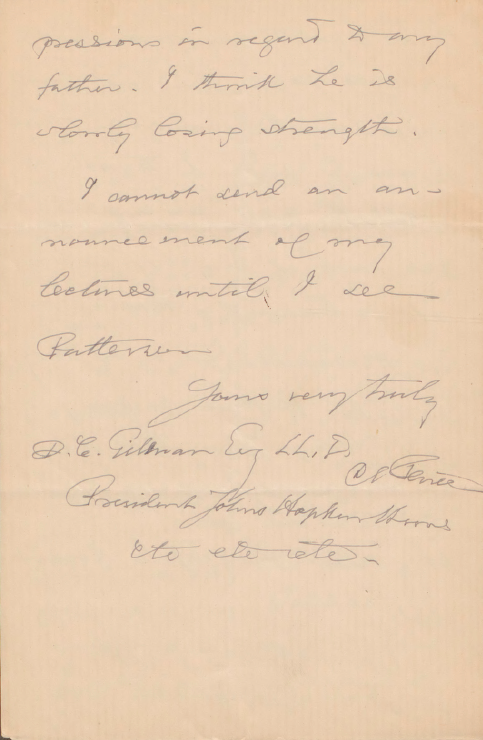 pressions in regard to my
father. I think he is
slowly losing strength.
I cannot send an an-
nouncement of my
lectures until I see
Patterson
Yours very truly
D. C. Gilman Esq LL.D.
C S Peirce
President Johns Hopkins
etc etc etc.